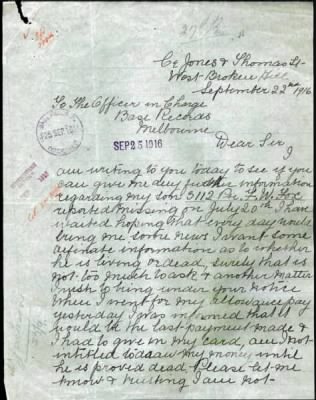 Cr Jones & Thomas St
West Broken Hill
September 22nd 1916
To The Officer in Charge
Base Records
Melbourne
SEP 25 1916
Dear Sir,
am writing to you today to see if you
can give me any further information
regarding my son 3112 Pte F. W. Fox
reported missing on July 20th I have
waited hoping that every day would
bring me some news I want some
definate information as to whether
he is living or dead, surely that is
not too much to ask & another matter
I wish to bring under your notice
When I went for my allowance pay
yesterday I was informed that it
would be the last payment made &
I had to give in my card, am I not
intitled to draw my money until
he is provid dead Please let me
know & trusting I am not-